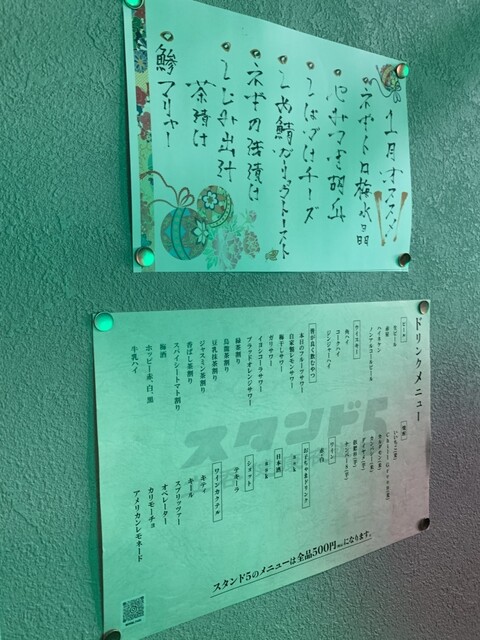 1月オススメ!!
ネギトロ梅水晶
しばづけチーズ
しめ鯖ガリガリトースト
ネギの浅漬け
しじみ出汁
茶漬け
鯵フリャー
ドリンクメニュー
ビール
生ビール
赤星
ハイネケン
ノンアルコールビール
ウイスキー
角ハイ
コークハイ
ジンジャーハイ
皆が良く飲むやつ
本日のフルーツサワー
自家製レモンサワー
梅干しサワー
ガリサワー
イヨシコーラサワー
ブラッドオレンジサワー
緑茶割り
烏龍茶割り
豆乳抹茶割り
ジャスミン茶割り
香ばし茶割り
スパイシートマト割り
梅酒
ホッピー赤、白、黒
牛乳ハイ
焼酎
ワイン
赤・白
おこちゃまドリンク
日本酒
ショット
テキーラ
ワインカクテル
キティ
キール
スプリッツァー
オペレーター
カリモーチョ
アメリカンレモネード
スタンド5
スタンド5のメニューは全品500円(税込)になります。